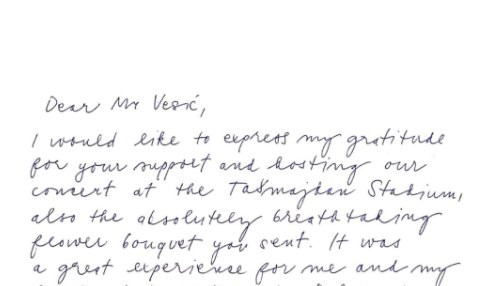 Dear Mr Vesić,
I would like to express my gratitude
for your support and hosting our
concert at the Tašmajdan Stadium,
also the absolutely breathtaking
flower bouquet you sent. It was
a great experience for me and my